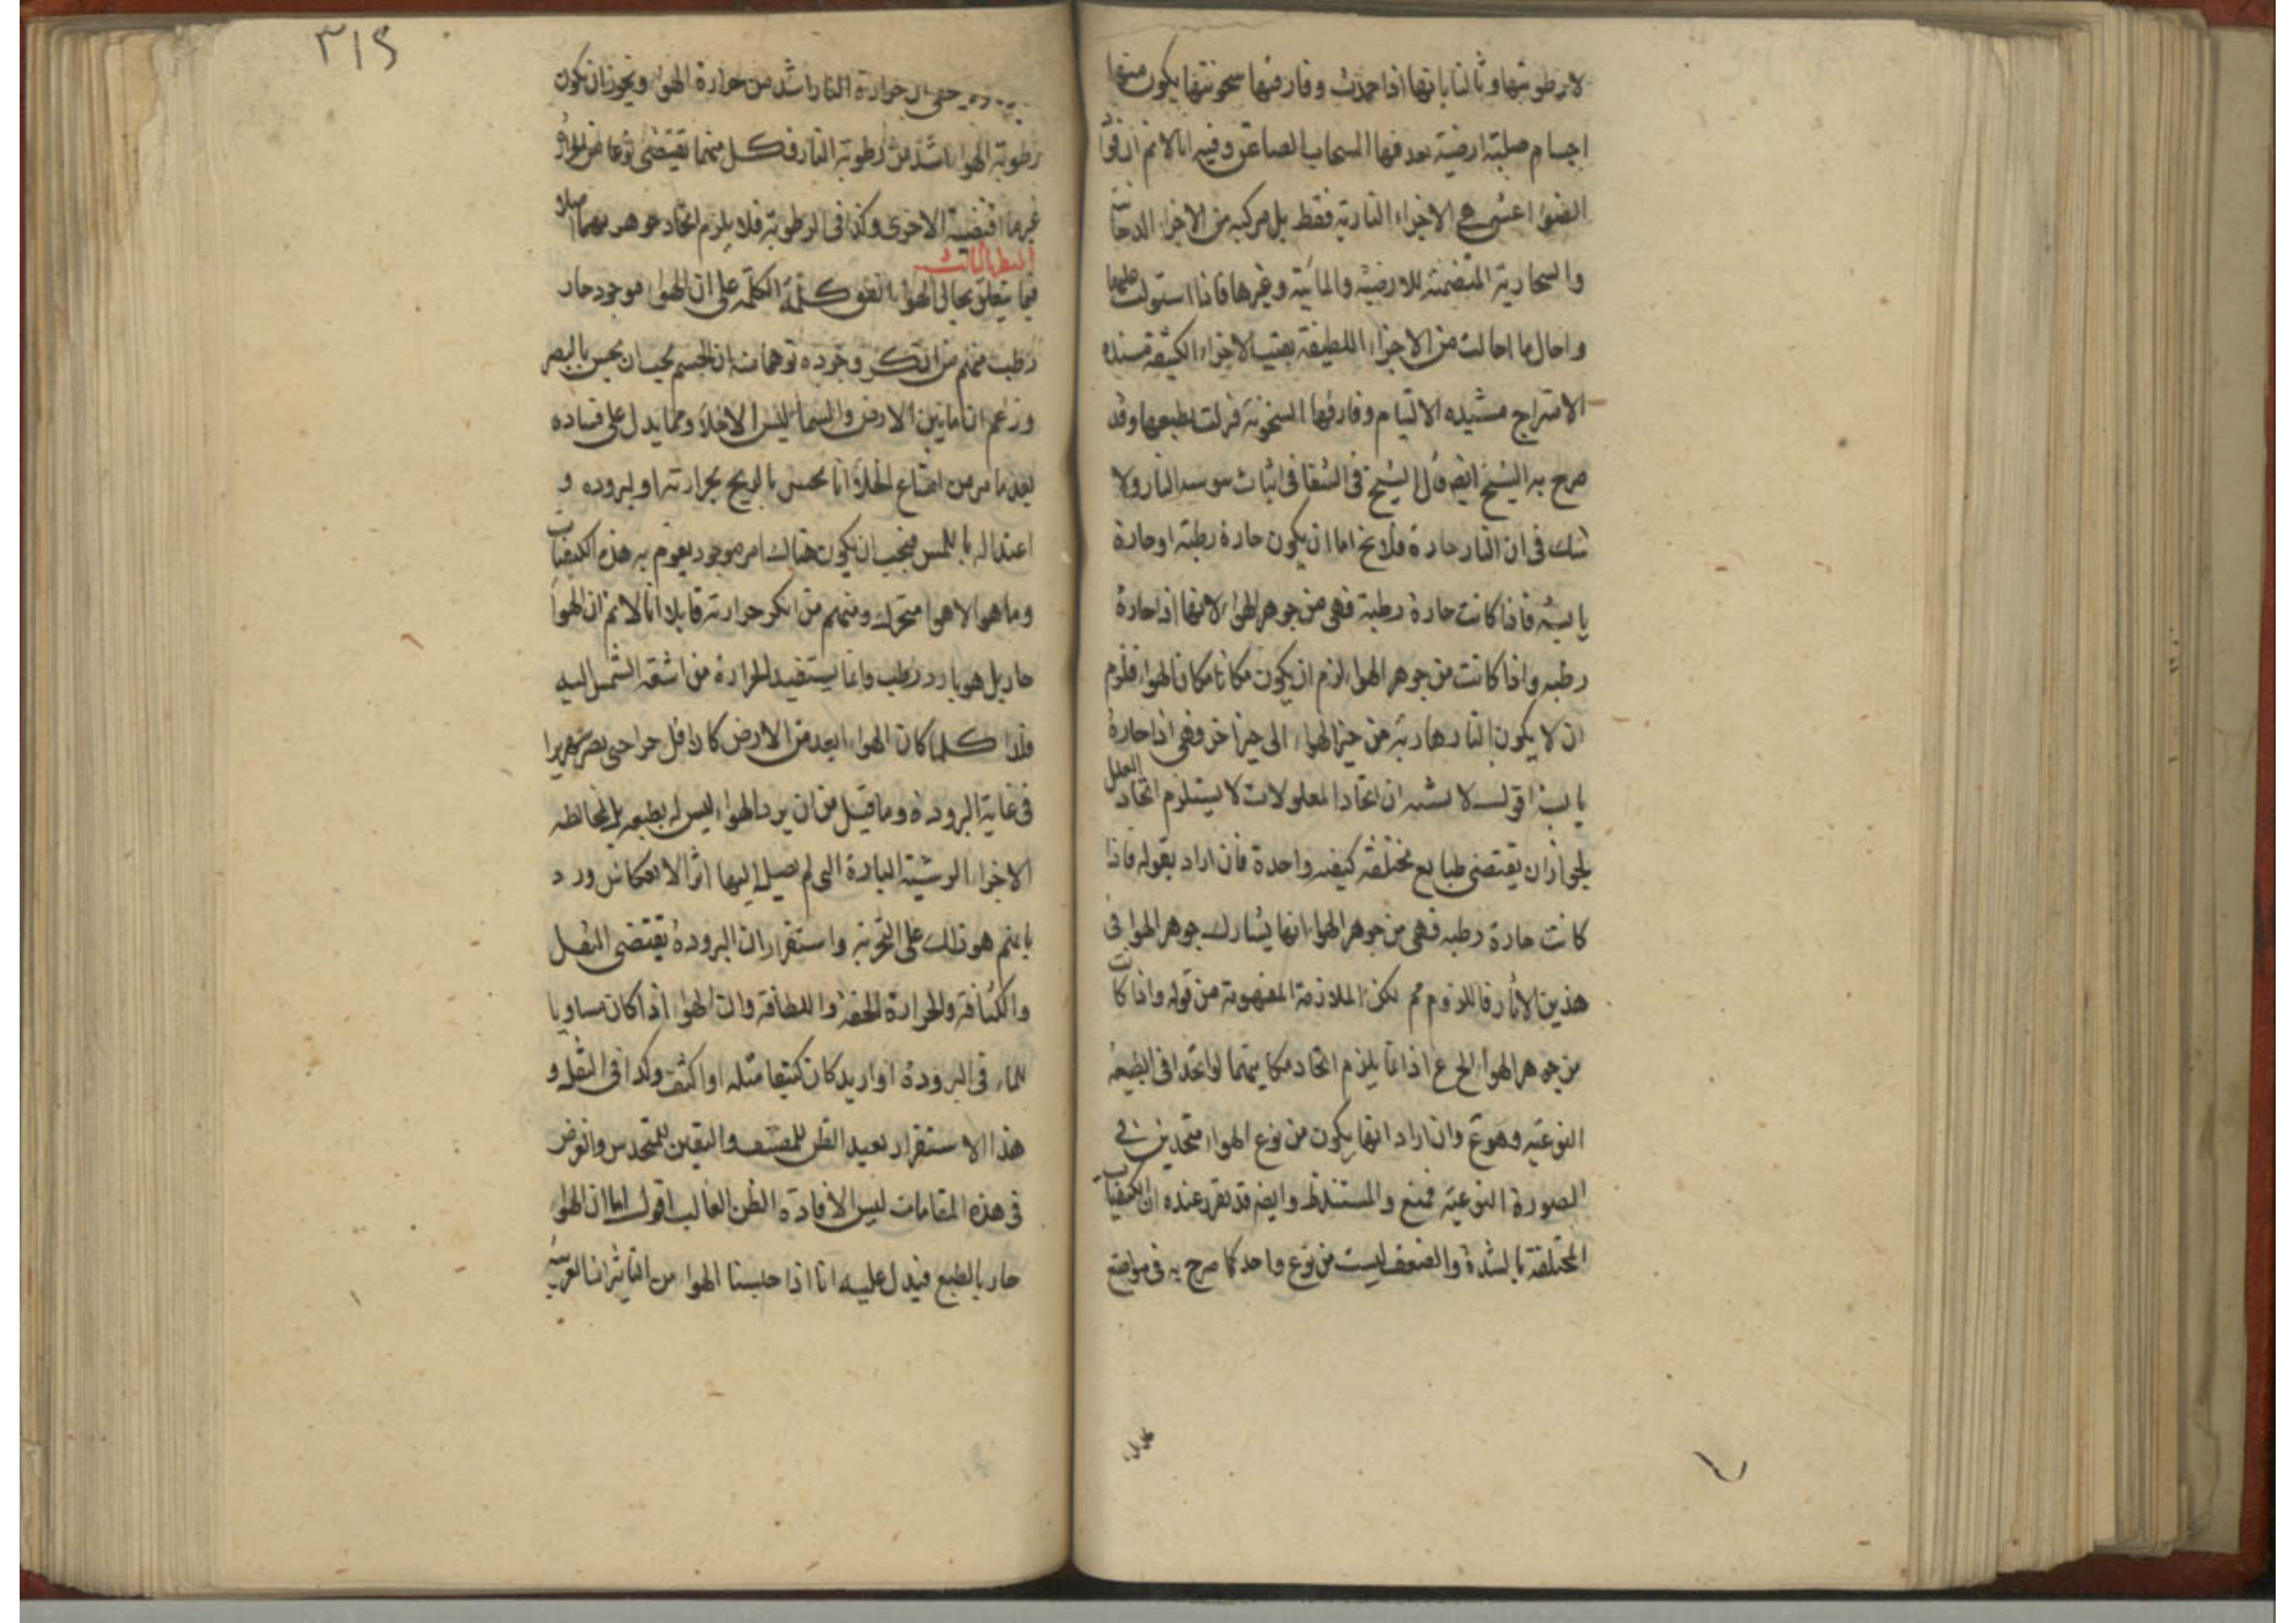 لا رطوبتها وثالثا بانها اذا خمدت وفارقتها سخونتها يكون منها
اجسام صلبة ارضية يقدفها السحاب الصاعق وفيه انا لا نم ان قوا
الضوا اعنى هي الاجزاء النارية فقط بل مركبه من الاجزاء الدخانية
والبخارية المتضمنة للارضية والمائية وغيرها فاذا استولت عليها
واحال ما احالت من الاجزاء اللطيفة بقيت الاجزاء الكثيفة
الامتزاج مشيده الالتيام وفارقها السخونة فنزلت بطبعها وقد
صرح به الشيخ ايض قال الشيخ في الشفا في اثبات يبوسه النار ولا
شك في ان النار حارة فلا يخ اما ان يكون حارة رطبة او حارة
يابسه فاذا كانت حارة رطبة فهي من جوهر الهواء لانها اذا حارة
رطبه واذا كانت من جوهر الهواء لزم ان يكون مكانا مكان الهواء فلزم
ان لا يكون النار هاربة من حيز الهواء الى حيز اخر فهي اذا حارة
يابسة اقول لا يشبه ان اتحاد المعلولات لا يستلزم اتحاد العلل
لجواز ان يقتضي طبايع مختلفة كيفيه واحدة فان اراد بقوله فاذا
كانت حارة رطبه فهي من جوهر الهواء انها يشارك جوهر الهوا في
هذين الاثار فاللزوم مم لكن الملازمة المفهومة من قوله واذا كانت
من جوهر الهواء الخ ع اذ انما يلزم اتحاد مكانيهما لو اتحدا في الطبيعة
النوعية وهو ع وان اراد انها يكون من نوع الهواء متحدين في
الصورة النوعية فمنع والمستند ظ وايضم قد تقرر عنده ان الكيفيات
المختلفة بالشدة والضعف ليست من نوع واحد كما صرح به في مواضع
٣١٥
حرارة النار اشد من حرارة الهواء ويجوز ان يكون
رطوبة الهواء اشد من رطوبة النار فكل منهما يقتضي نوعا من الحرارة
غير ما اقتضيه الاخرى وكذا في الرطوبة فلا يلزم اتحاد جوهرهما اصلا
المطلب الثالث
فيما يتعلق بحال الهواء اتفق كلمة الحكمة على ان الهواء موجود حار
رطب منهم من انكر وجوده توهما منه ان الجسم يجب ان يحس بالبصر
وزعم ان ما بين الارض والسماء ليس الا خلاء ومما يدل على فساده
بعد ما مر من امتناع الخلاء انا نحس بالريح بحرارته او بروده و
اعتداله باللمس فيجب ان يكون هناك امر موجود يقوم به هذه الكيفيات
وما هو الا هوا متحرك ومنهم من انكر حرارته قايلا انا لا نم ان الهواء
حار بل هو بارد رطب وانما يستفيد الحرارة من اشعة الشمس اليه
فلذا كلما كان الهواء ابعد من الارض كان اقل حرا حتى يصر زمهريرا
في غاية البرودة وما قيل من ان برد الهواء ليس له بطبعه بل لمخالطه
الاجزاء الرشية الباردة التي لم يصل اليها اثر الانعكاس ورد
بانم هو ذلك على التجربة واستقرار ان البرودة يقتضي الثقل
والكثافة والحرارة الخفة واللطافة وان الهواء اذا كان مساويا
للماء في البرودة او ازيد كان كثيفا مثله او اكثف وكذا في الثقل و
هذا الاستقرار يفيد الظن للمصنف واليقين للمتحدس والغرض
في هذه المقامات ليس الا فادة الظن الغالب اقول اما ان الهواء
حار بالطبع فيدل عليه انا اذا حبسنا الهواء من التاثيرات الغريبة